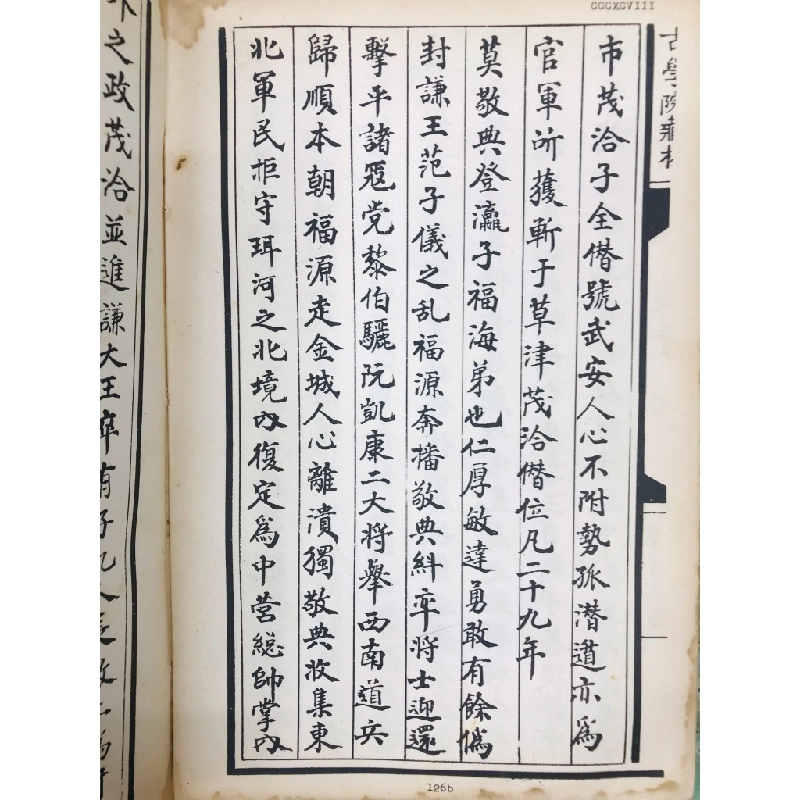 CCCXCVIII
古學院藏本
市茂洽子全僭號武安人心不附勢孤潜遁亦爲
官軍所獲斬于草津茂洽僭位凡二十九年
莫敬典登瀛子福海弟也仁厚敏達勇敢有餘僞
封謙王范子儀之乱福源奔播敬典糾率將士迎還
擊平諸冦党黎伯驪阮凱康二大將舉西南道兵
歸順本朝福源走金城人心離潰獨敬典收集東
北軍民拒守珥河之北境內復定爲中营総帥掌內
外之政茂洽並進謙大王卒有子九人
125b